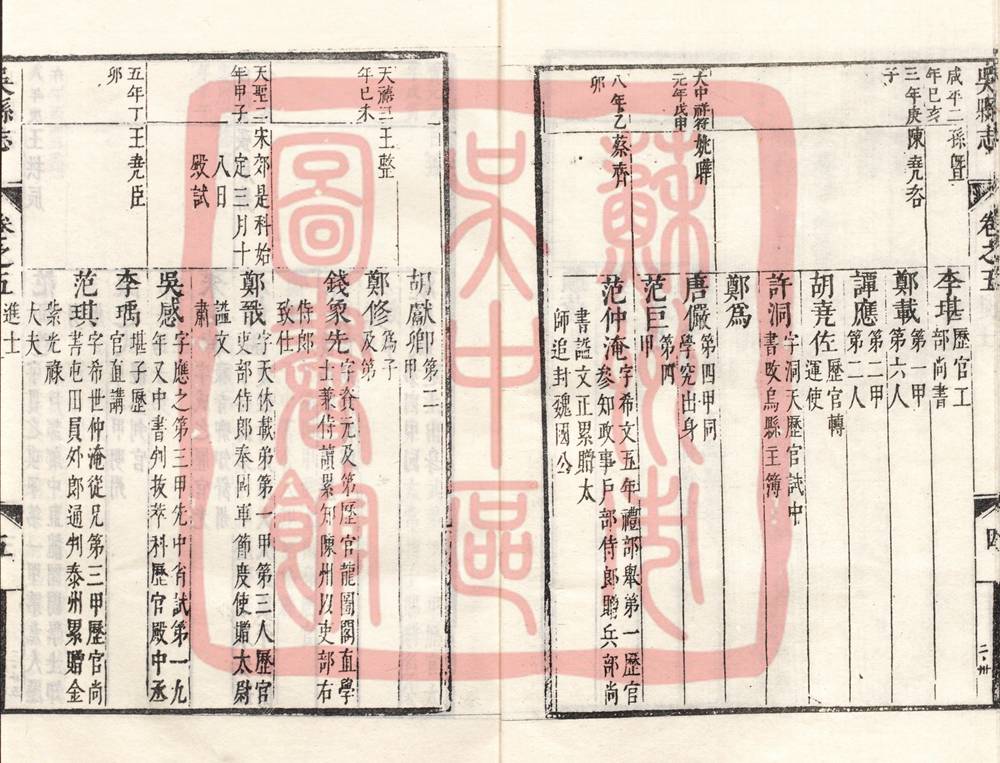 吳縣志
卷之五
四
咸平二年已亥
孫曁
三年庚子
陳堯咨
大中祥符元年戊申
姚曄
八年乙卯
蔡齊
李堪歷官工部尚書
鄭載第一甲第六人
譚應第二甲第二人
胡堯佐歷官轉運使
許洞字洞天歷官試中書攺烏縣主簿
鄭爲
唐儼第四甲同學究出身
范巨第四甲
范仲淹字希文五年禮部舉第一歷官參知政事戸部侍郎贈兵部尚書謚文正累贈太師追封魏國公
天禧三年已未
王整
天聖二年甲子
宋郊是科始定三月十八日殿試
五年丁卯
王堯臣
胡獻卿第二甲
鄭修爲子及第
錢象先字資元及第歷官龍圖閣直學士兼侍讀累知陳州以吏部右侍郎致仕
鄭戩字天休載弟第一甲第三人歷官吏部侍郎奉國軍節度使贈太尉謚文肅
吳感字應之第三甲先中省試第一九年又中書判拔萃科歷官殿中丞
李瑀堪子歷官直講
范琪字希世仲淹從兄第三甲歷官尚書屯田員外郎通判泰州累贈金紫光祿大夫
進士
吳縣志
卷之五
五
蘇州市
吳中區
圖書館